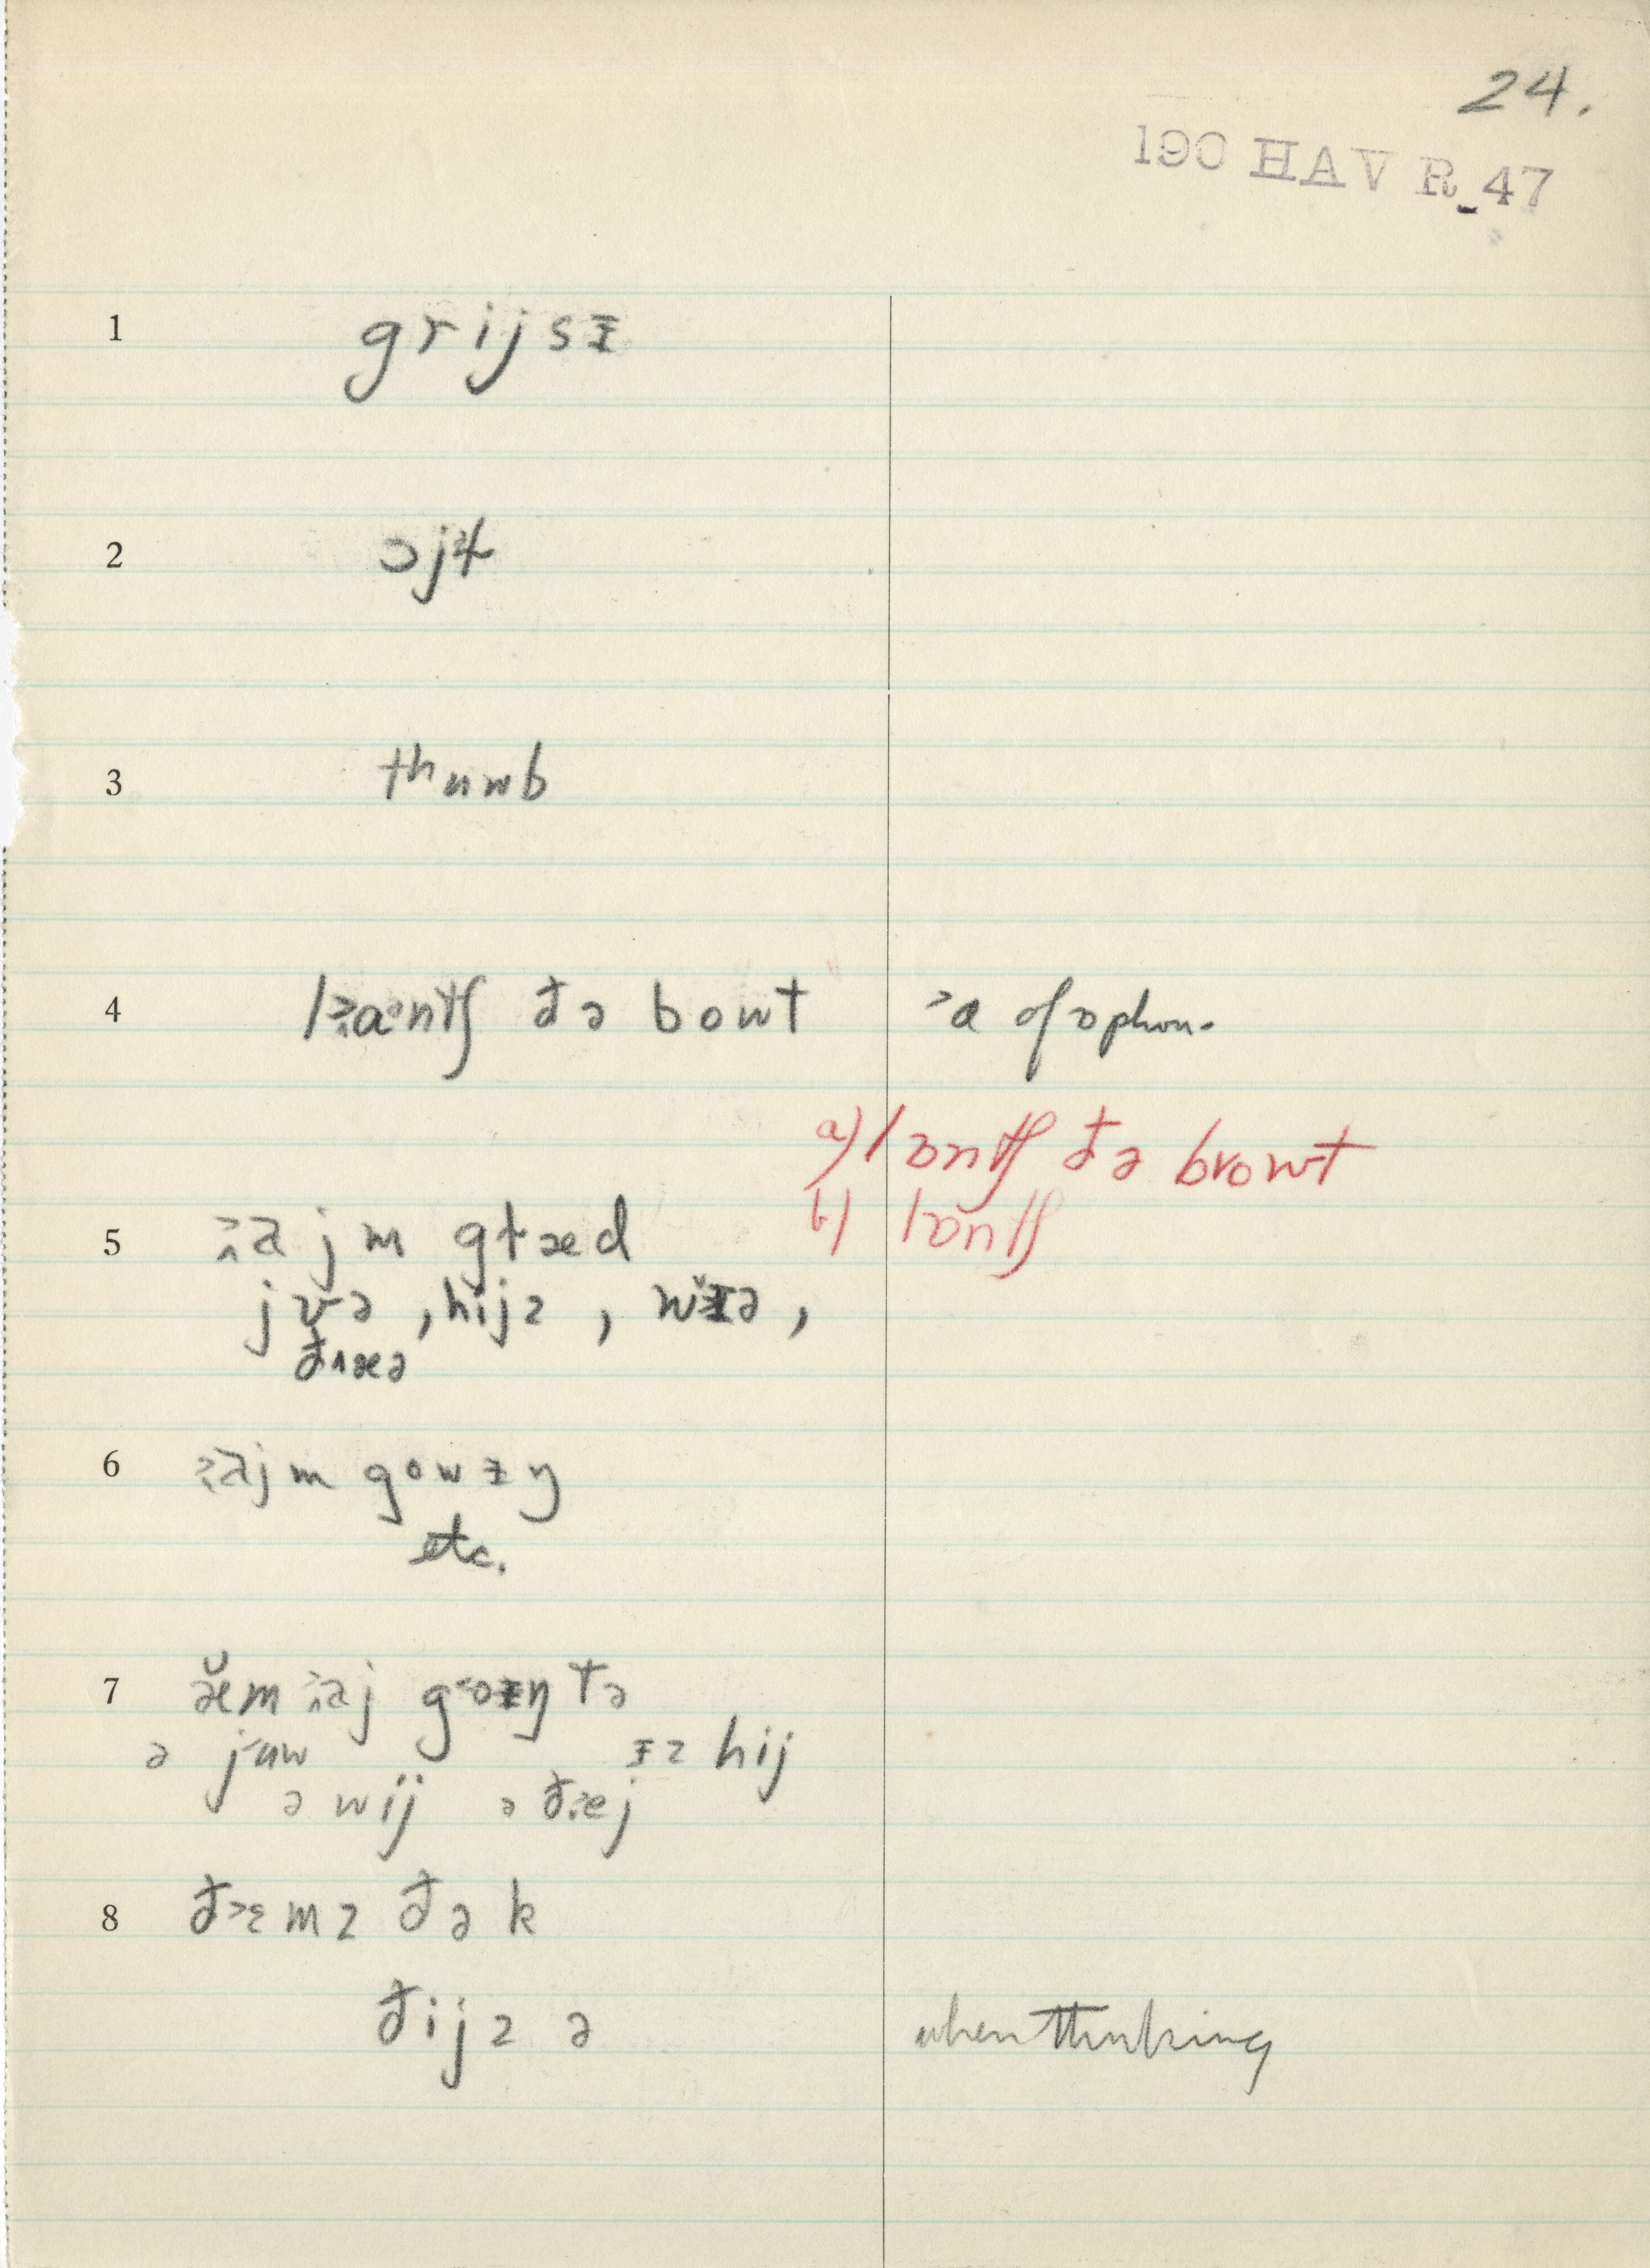 24.
190 HAV R 47
1 grijsɪ
2 ɔjɫ
3 thumb
4 lɑntʃ ðə bowt ˃ɑ of ɔ phon.
a) lɔntʃ ðə browt
b) lɔntʃ
5 ajm glæd
jʊə , hijz , wɪə ,
ðæə
6 ajm gowɪŋ
etc.
7 æm aj goɪŋ tə
ə juw ɪz hij
ə wij ə ðej
8 ðɛmz ðə k
ðijz ə when thinking